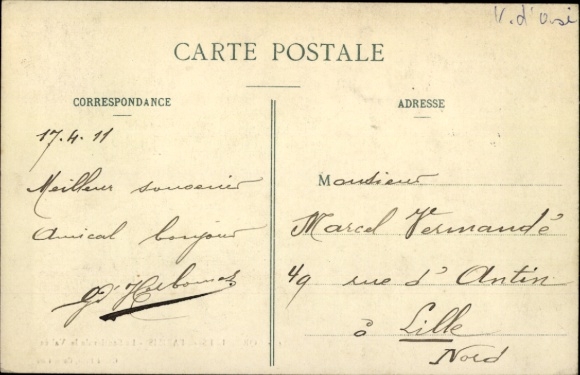 V. d'oise
CARTE POSTALE
CORRESPONDANCE
ADRESSE
17.4.11
Meilleur souvenir
Amical bonjour
Monsieur
Marcel Vermandé
49 rue d'Antin
à Lille
Nord